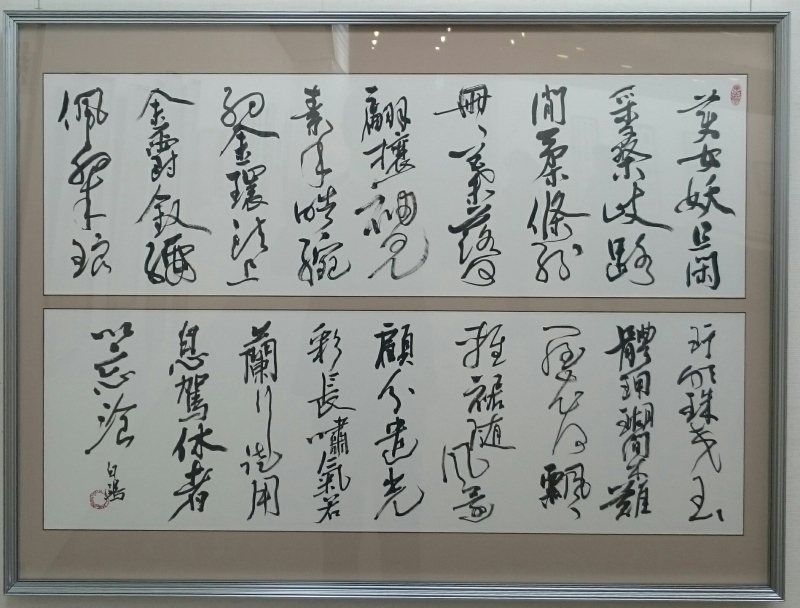 美女妖且閑
采桑歧路
間柔條紛
冊〻葉落何
翩〻攘袖見
素手皓腕
約金環頭上
金爵釵腰
佩翠琅
玕明珠交玉
體珊瑚間木難
羅衣何飄〻
輕裾随風還
顧盼遺光
彩長嘯氣若
蘭行徒用
息駕休者
以忘湌